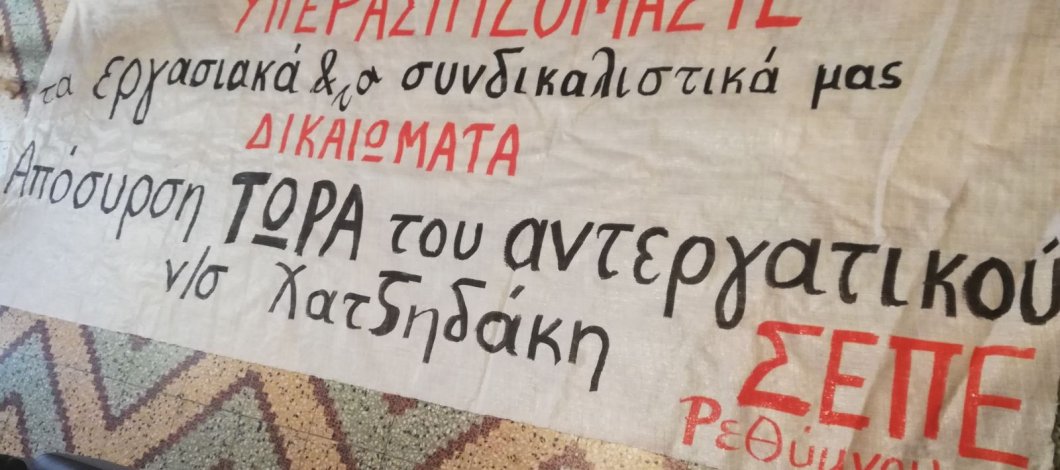 ΥΠΕΡΑΣΠΙΖΟΜΑΣΤΕ
τα εργασιακά & τα συνδικαλιστικά μας
ΔΙΚΑΙΩΜΑΤΑ
Απόσυρση ΤΩΡΑ του αντεργατικού
ν/σ Χατζηδάκη
ΣΕΠΕ
Ρεθύμνου